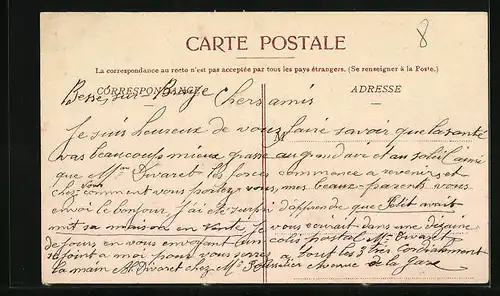 8
CARTE POSTALE
La correspondance au recto n'est pas acceptée par tous les pays étrangers. (Se renseigner à la Poste.)
CORRESPONDANCE
ADRESSE
Besse sur Braye Chers amis
M
Je suis heureux de vous faire savoir que la santé
vas beaucoup mieux grasse au grand air et au soleil ainsi
que Mme Divaret les forces commance a revenir et
chez vous comment vous portez vous, mes beaux-parents vous
envoi le bonjour J'ai été surpri d'apprendre que Petit avait
mit sa maison en vente je vous écrirait dans une dizaine
de jours en vous envoyant un colis postal Mme Divaret
se joint a moi pour vous serrer a tout les 3 très cordialement
la main M. Divaret chez Mr avenue de la Gare